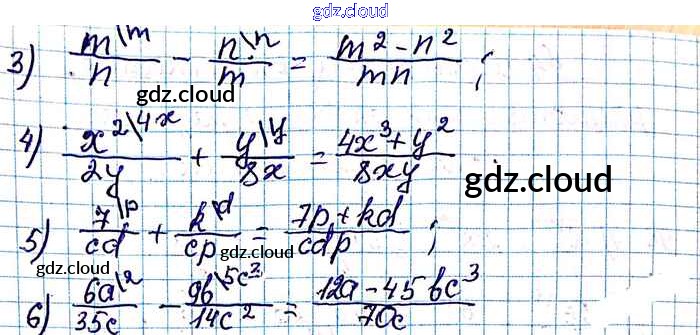 gdz.cloud
3) m\m/n - n\n/m = m² - n²/mn ;
gdz.cloud
4) x²\4x/2y + y\y/8x = 4x³ + y²/8xy
gdz.cloud
5) 7\p/cd + k\d/cp = 7p + kd/cdp ;
gdz.cloud gdz.cloud
6) 6a\2/35c - 9b\5c²/14c² = 12a - 45bc³/70c